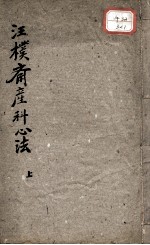 汪樸齋產科心法
上